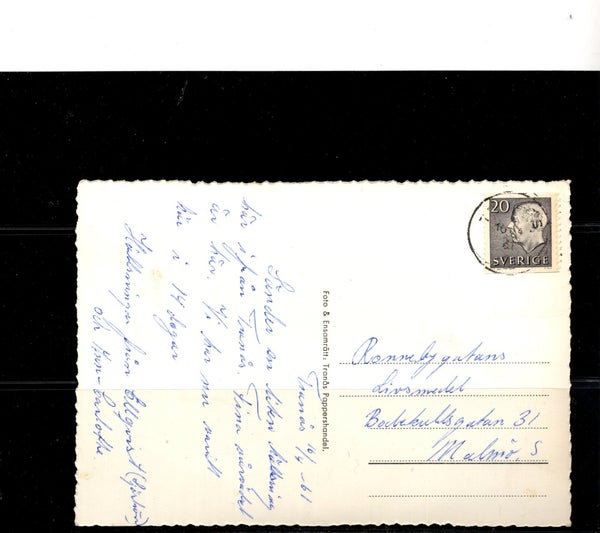 Tranås 16/4 -61
Sänder en liten hälsning
här ifrån Tranås. Fina vårvädret
är här. Vi har nu varit
här i 14 dagar
Hälsningar från Ellqvist
och Ann-Charlotte
Foto & Ensamrätt: Tranås Pappershandel.
20
SVERIGE
Ronnebygatans
Livsmedel
31
Malmö, S